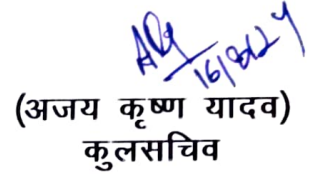 16/8/24
(अजय कृष्ण यादव)
कुलसचिव